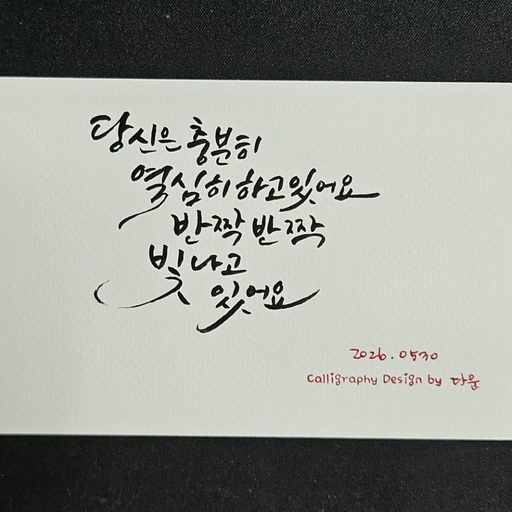 당신은 충분히
열심히 하고있어요
반짝반짝
빛나고
있어요
2026.0530
Calligraphy Design by 다운